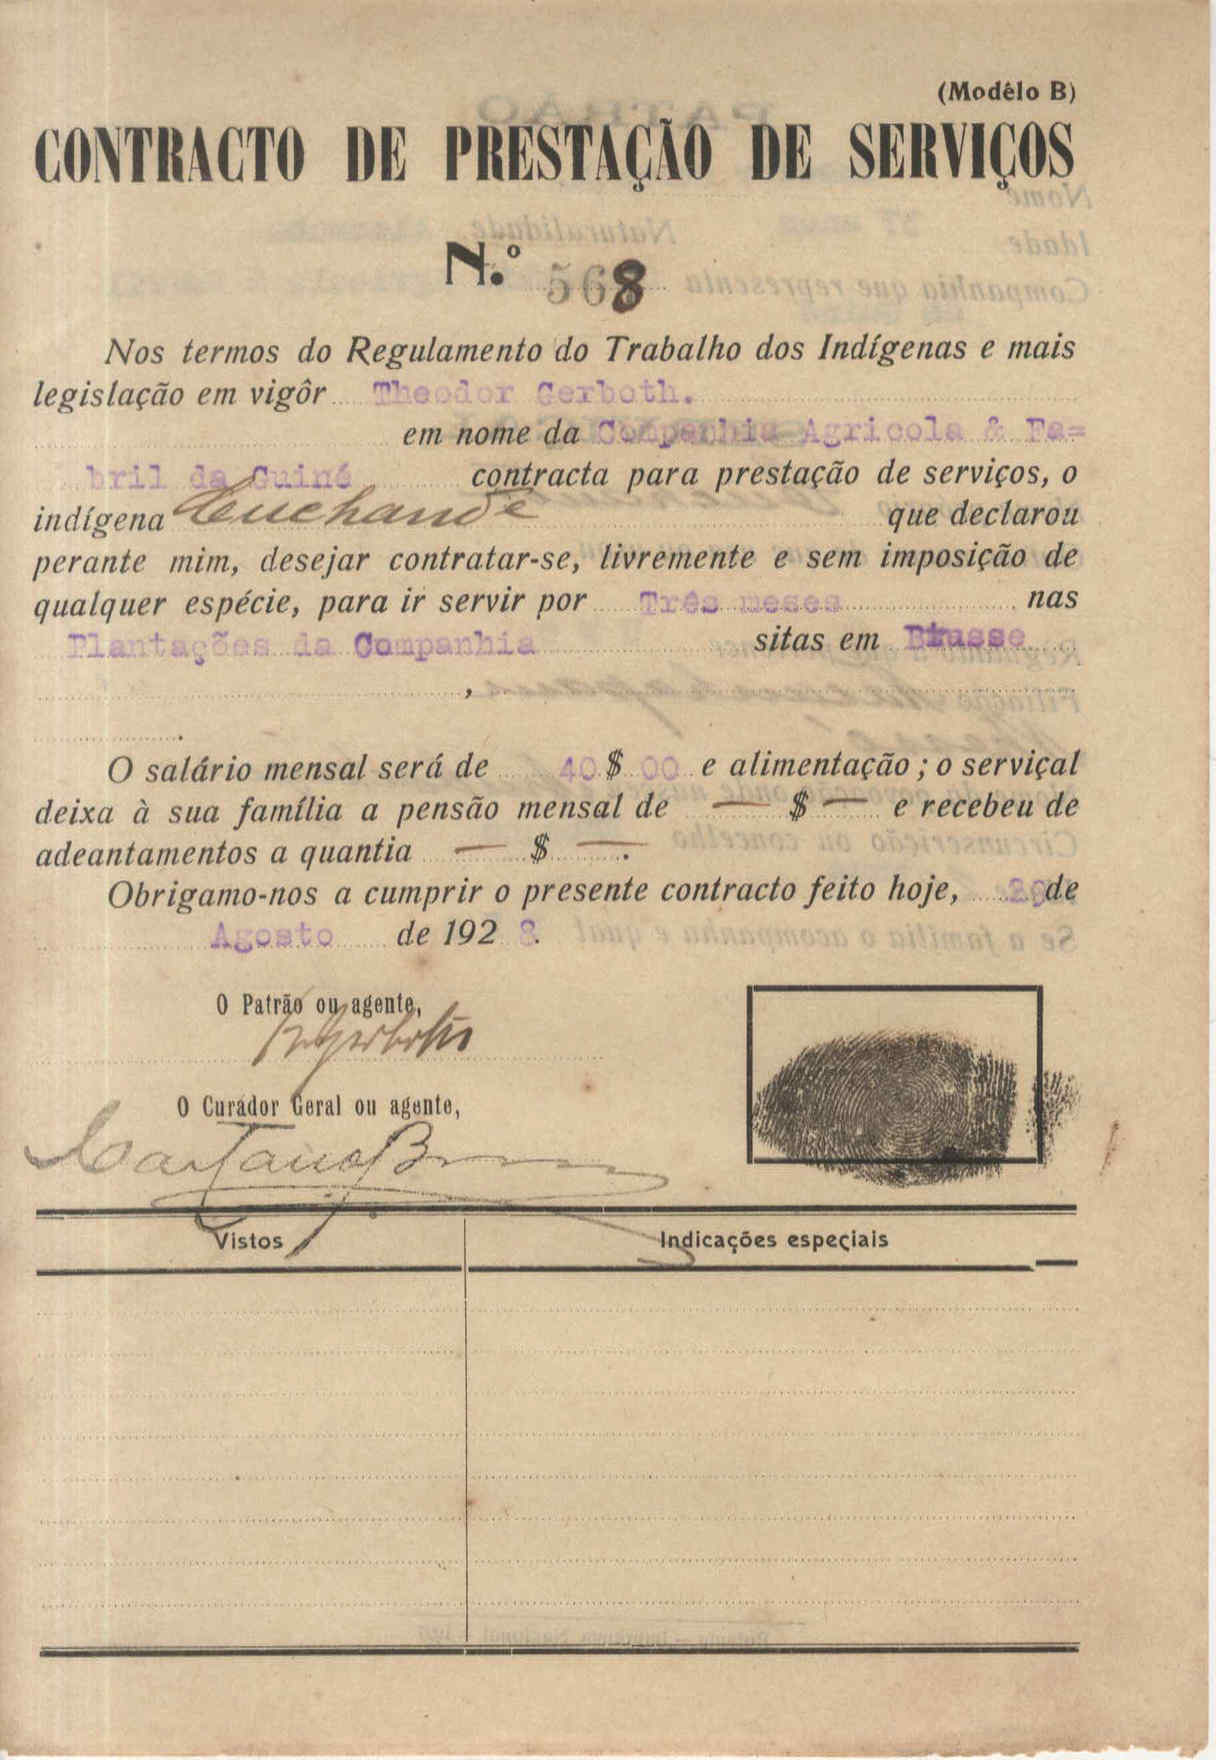 (Modêlo B)
CONTRACTO DE PRESTAÇÃO DE SERVIÇOS
N.º 568
Nos termos do Regulamento do Trabalho dos Indígenas e mais
legislação em vigôr Theodor Gerboth.
em nome da Companhia Agricola & Fa=
bril da Guiné contracta para prestação de serviços, o
indígena que declarou
perante mim, desejar contratar-se, livremente e sem imposição de
qualquer espécie, para ir servir por Três meses nas
Plantações da Companhia sitas em
,
.
O salário mensal será de 40$00 e alimentação; o serviçal
deixa à sua família a pensão mensal de — $ — e recebeu de
adeantamentos a quantia — $ — .
Obrigamo-nos a cumprir o presente contracto feito hoje, 29 de
Agosto de 1928.
O Patrão ou agente,
O Curador Geral ou agente,
Vistos Indicações especiais